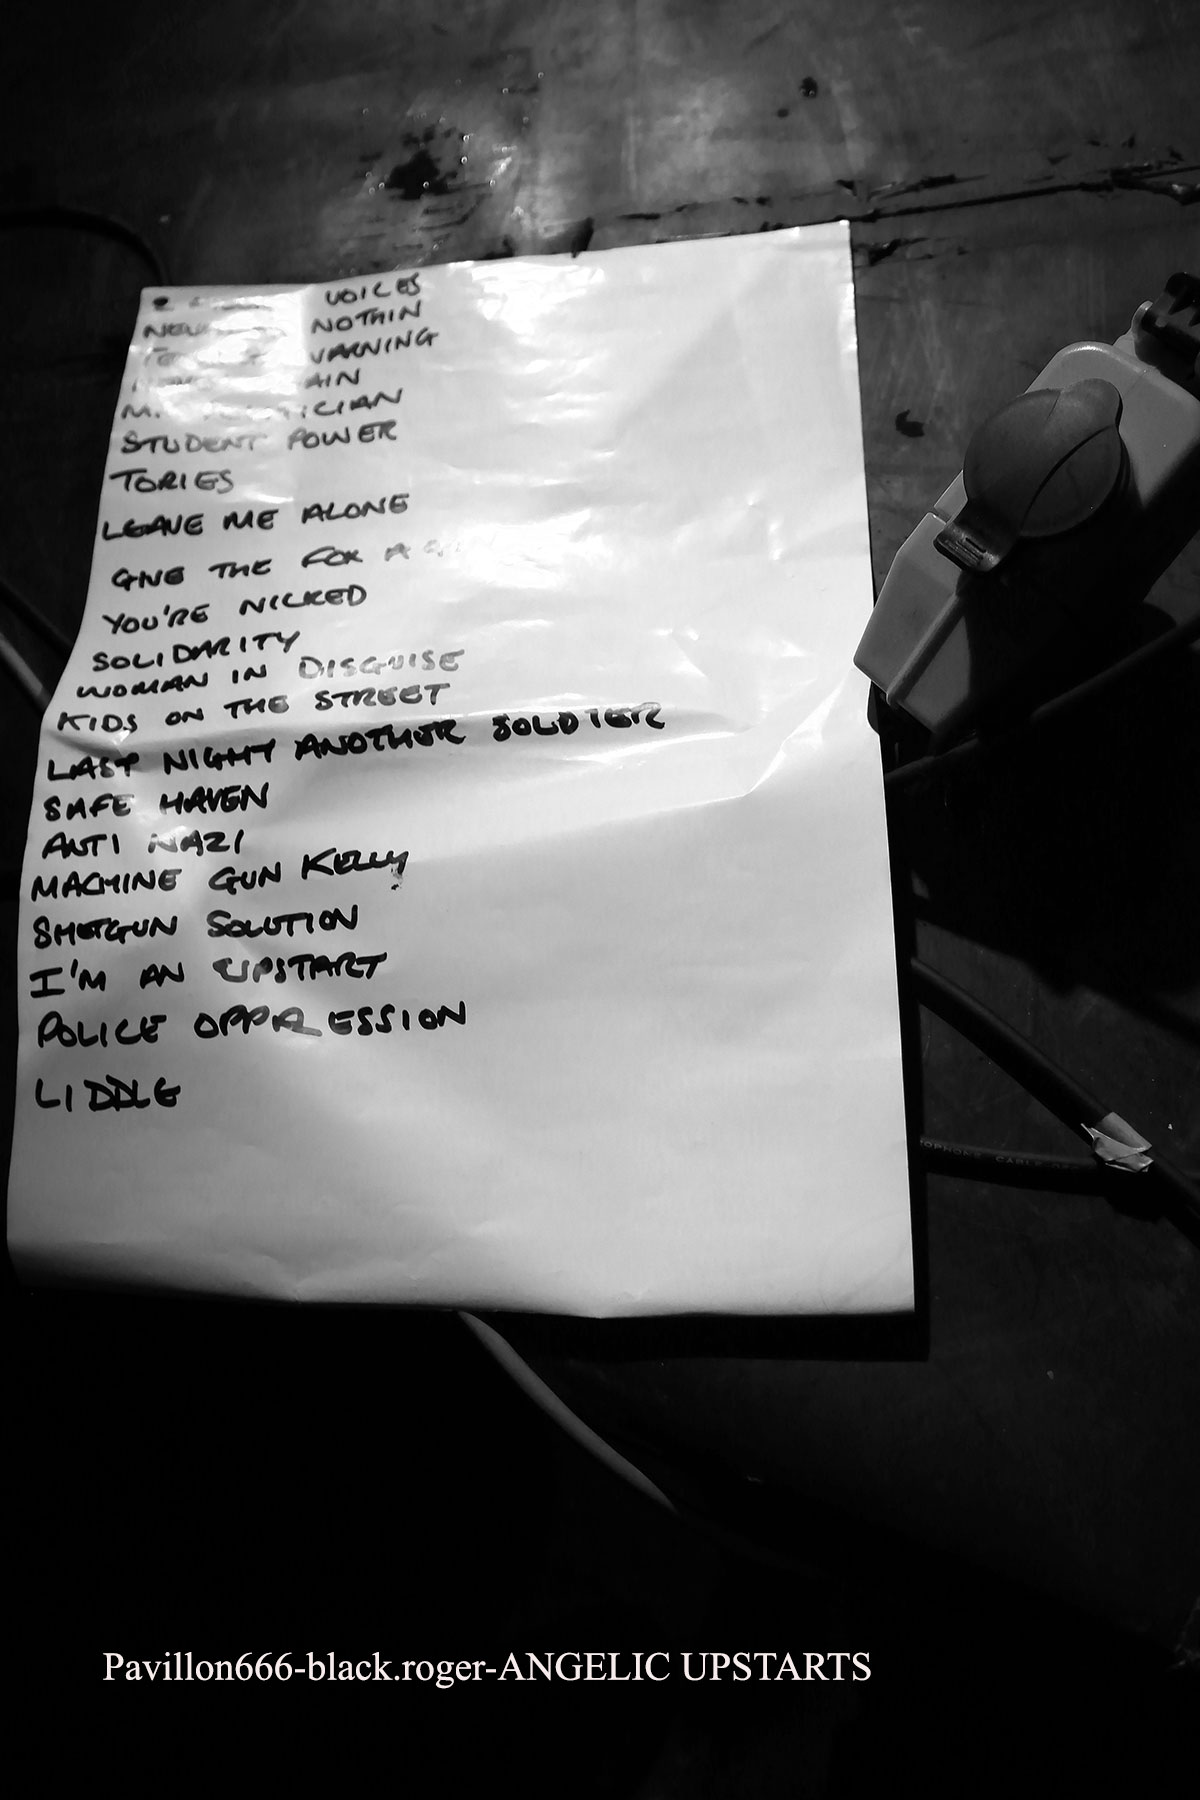 VOICES
NOTHIN
WARNING
STUDENT POWER
TORIES
LEAVE ME ALONE
GIVE THE FOX A
YOU'RE NICKED
SOLIDARITY
WOMAN IN DISGUISE
KIDS ON THE STREET
LAST NIGHT ANOTHER SOLDIER
SAFE HAVEN
ANTI NAZI
MACHINE GUN KELLY
SHOTGUN SOLUTION
I'M AN UPSTART
POLICE OPPRESSION
LIDDLE
CABLE
Pavillon666-black.roger-ANGELIC UPSTARTS